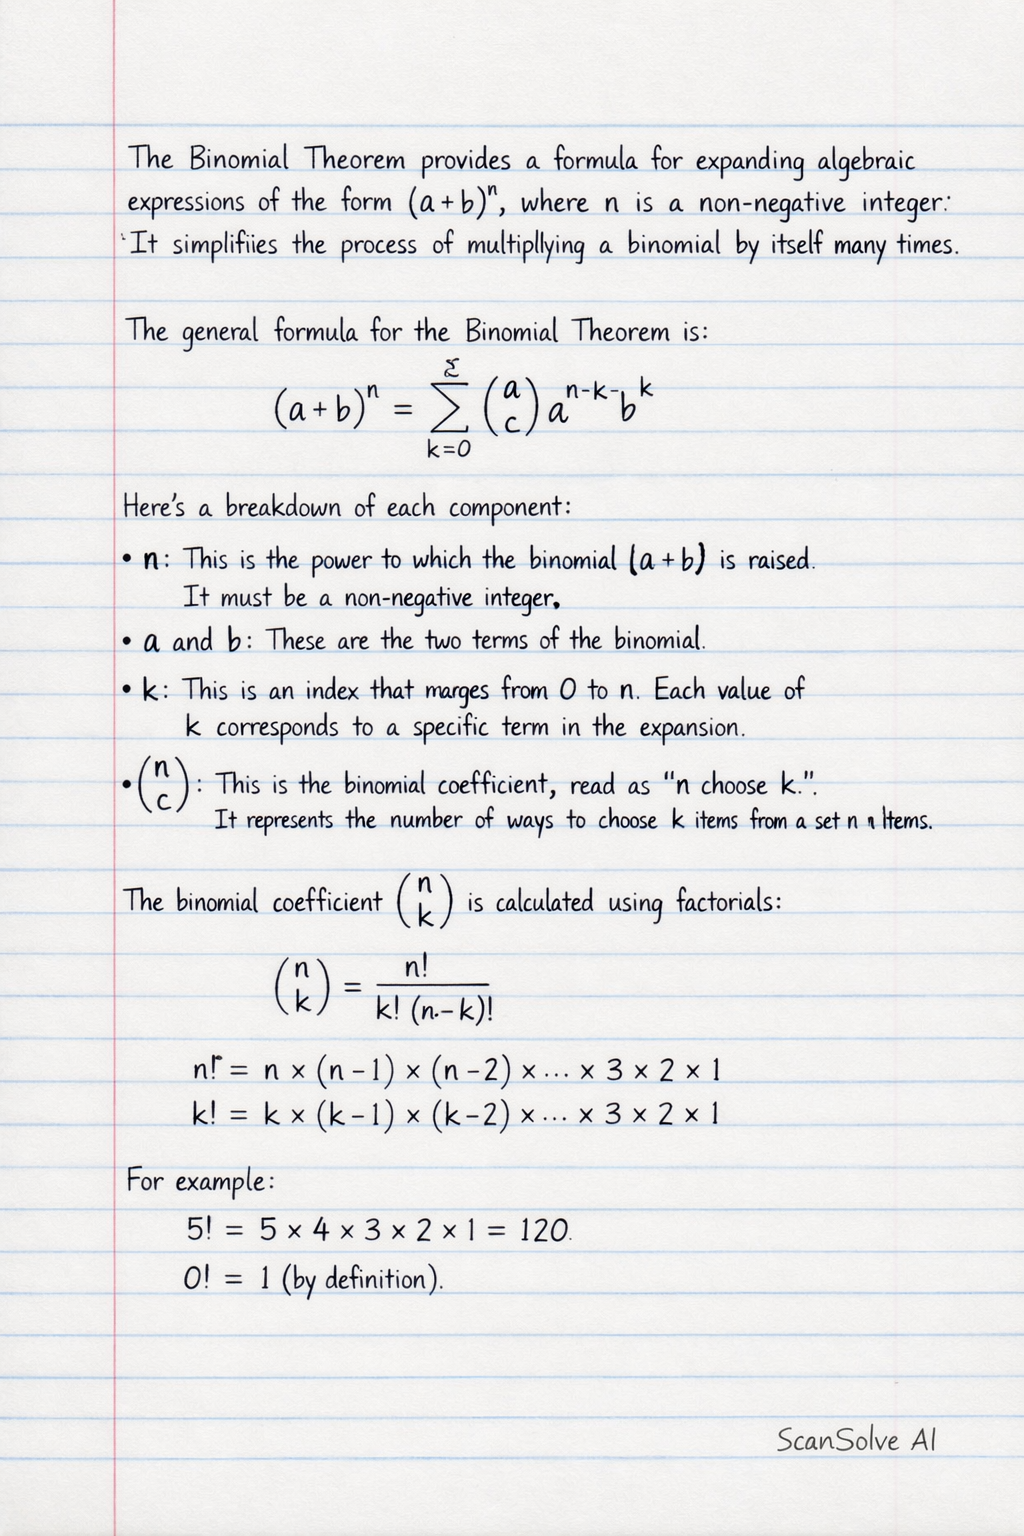 The Binomial Theorem provides a formula for expanding algebraic
expressions of the form (a + b)ⁿ, where n is a non-negative integer:
It simplifiies the process of multipllying a binomial by itself many times.
The general formula for the Binomial Theorem is:
(a + b)ⁿ = Σ_{k=0}^{Σ} (a c) a^{n-k-} b^k
Here's a breakdown of each component:
• n: This is the power to which the binomial (a + b) is raised.
It must be a non-negative integer.
• a and b: These are the two terms of the binomial.
• k: This is an index that marges from 0 to n. Each value of
k corresponds to a specific term in the expansion.
• (n c): This is the binomial coefficient, read as "n choose k.".
It represents the number of ways to choose k items from a set n n Items.
The binomial coefficient (n k) is calculated using factorials:
(n k) = n! / k! (n.-k)!
n! = n × (n-1) × (n-2) × ... × 3 × 2 × 1
k! = k × (k-1) × (k-2) × ... × 3 × 2 × 1
For example:
5! = 5 × 4 × 3 × 2 × 1 = 120.
0! = 1 (by definition).
ScanSolve AI